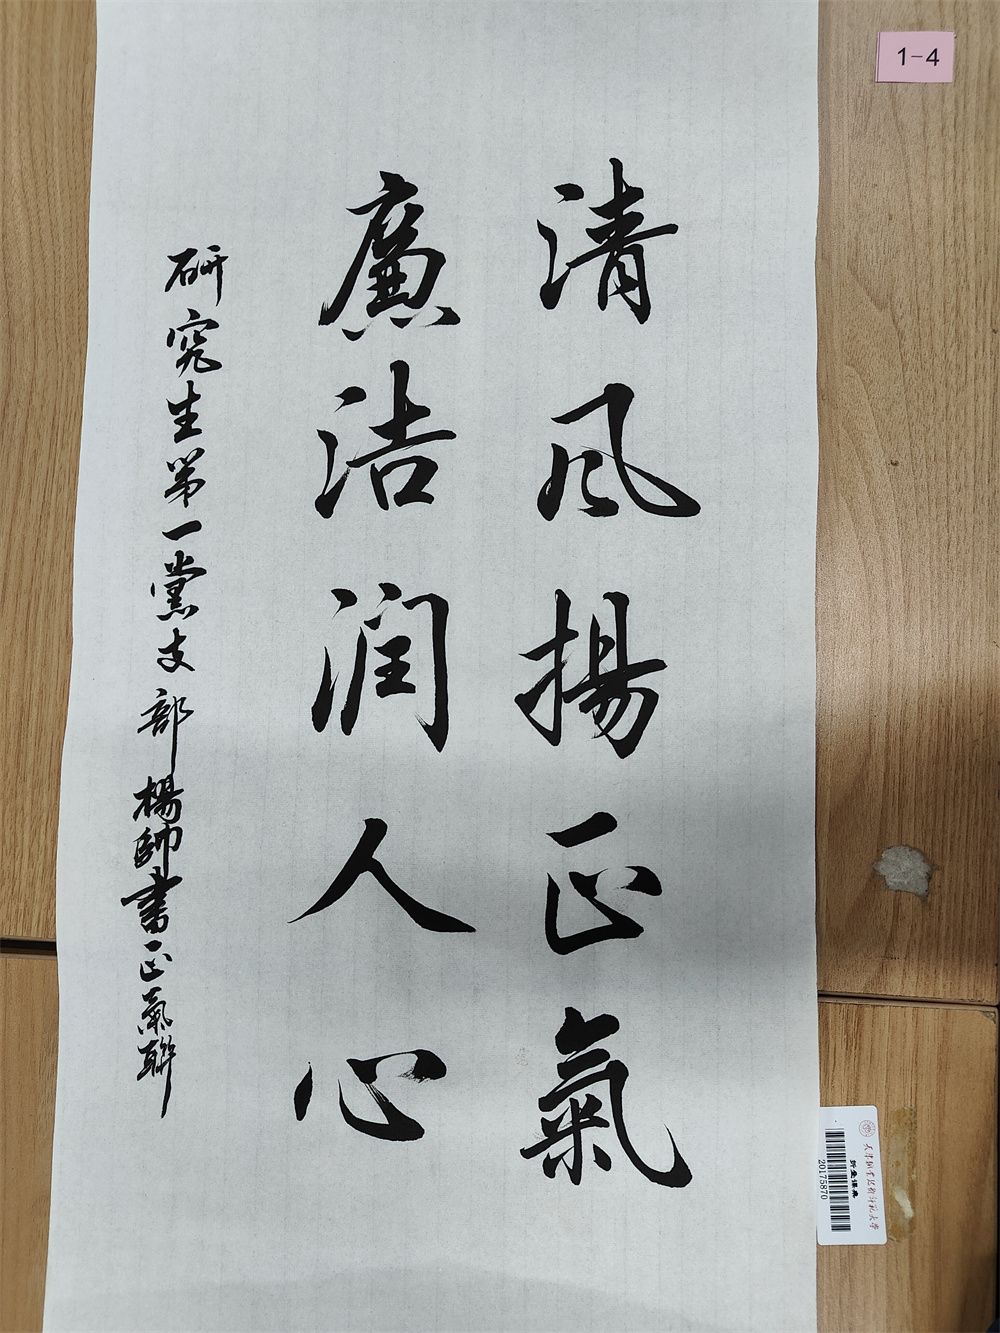 清風揚正氣
廉洁润人心
研究生第一黨支部楊帥書正氣聯
1-4
天津职业技术师范大学
折叠课桌
20175870